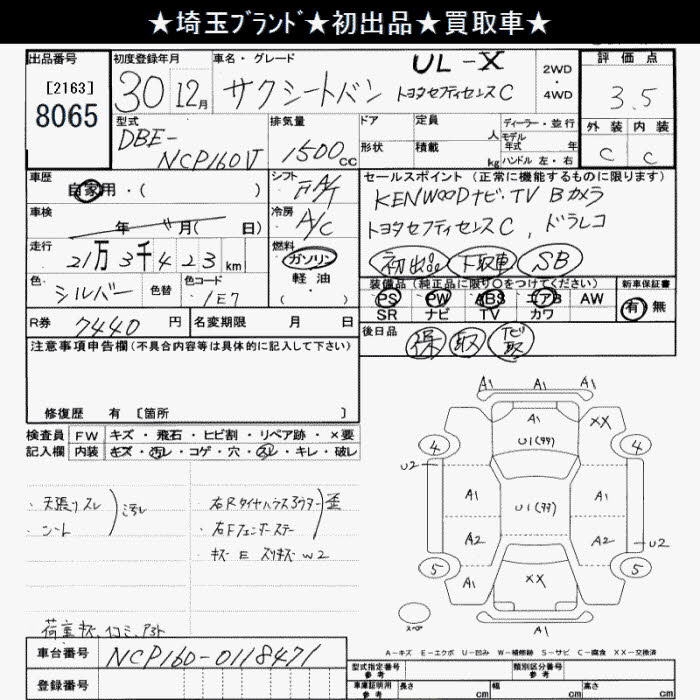 ★埼玉ﾌﾞﾗﾝﾄﾞ★初出品★買取車★
出品番号 初度登録年月 車名・グレード UL-X 2WD・4WD 評価点
[2163]
8065
30 12月 サクシードバン トヨタセフティセンスC 3.5
型式 排気量 ドア 定員 人 ディーラー・並行 外装 内装
DBE-NCP160V 1500cc 形状 積載 kg モデル年式 年 ハンドル 左・右 C C
車歴 自家用・( ) シフト FAT セールスポイント(正常に機能するものに限ります)
車検 年 月( 日) 冷房 A/C KENWOODナビ・TV Bカメラ
トヨタセフティセンスC、ドラレコ
走行 21万3千423km 燃料 ガソリン 軽油 ・( ) 初出品 下取車 SB
色 シルバー 色替 色コード 1E7 装備品(純正品に限り○をつけてください) 新車保証書
PS PW ABS エアB AW 有 無
SR ナビ TV カワ
R券 7440円 名変期限 月 日 後日品 保 取 ナビ取
注意事項申告欄(不具合内容等は具体的に記入して下さい)
修復歴 有 [箇所 ]
検査員記入欄 FW キズ・飛石・ヒビ割・リペア跡・×要
内装 キズ・汚レ・コゲ・穴・スレ・キレ・破レ
・天張リスレ
・シート
汚レ
・右Rタイヤハウスアウター
・右Fフェンダーステー
歪
・キズ E スリキズ W2
荷室キズ、凹ミ、アト
A1 A1 A1
A1 XX
4 U1(99) 4
U2
A1 U1(99) A1
A2 A2 U2
5 A1 XX A1 5
スペア A1
A-キズ E-エクボ U-凹み W-補修跡 S-サビ C-腐食 XX-交換済
車台番号 NCP160-0118471
登録番号
型式指定番号 類別区分番号
車庫証明用 参考 長さ cm 幅 cm 高さ cm